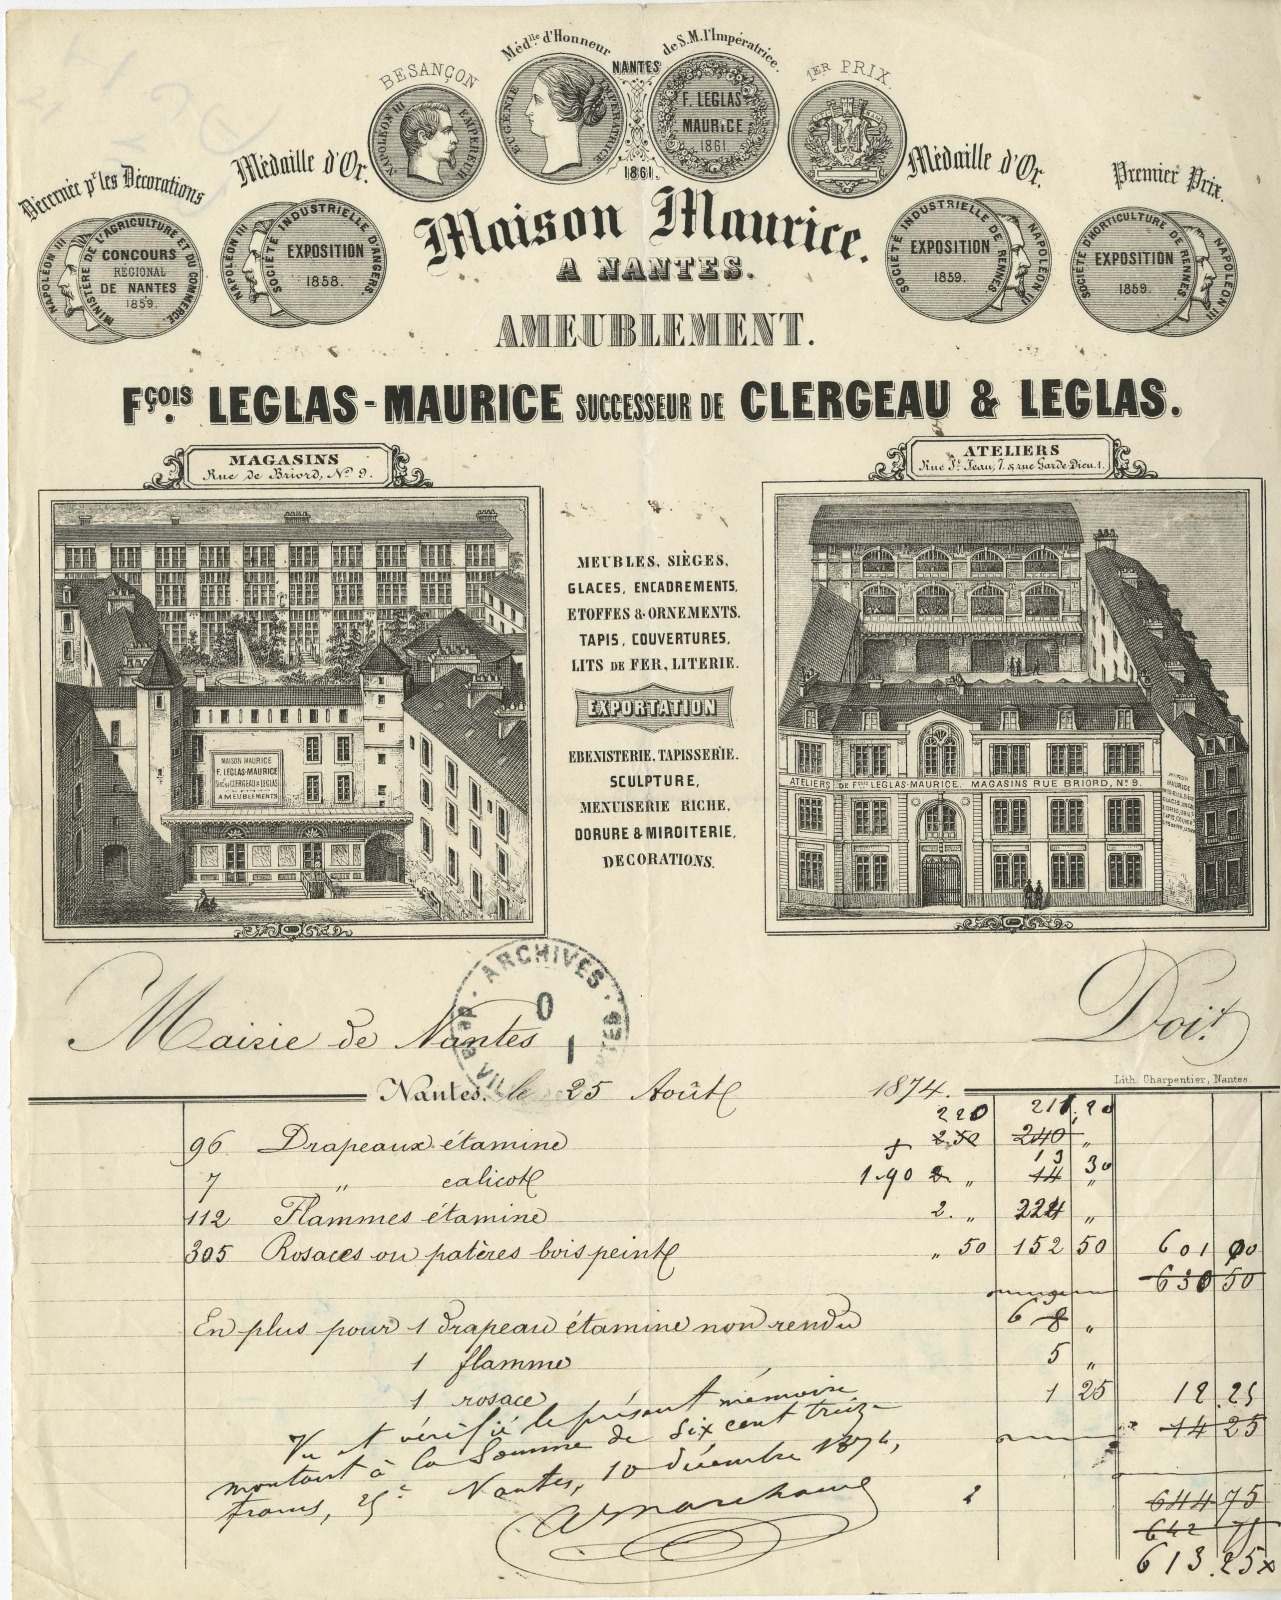 Méd.lle d'Honneur de S.M. l'Impératrice.
BESANÇON NANTES 1ER PRIX
NAPOLEON III EMPEREUR
EUGENIE IMPÉRATRICE
F. LEGLAS-
MAURICE
1861
1861.
Décernée pr les Décorations
Médaille d'Or.
Médaille d'Or.
Premier Prix.
NAPOLEON III
MINISTÈRE DE L'AGRICULTURE ET DU COMMERCE.
CONCOURS
REGIONAL
DE NANTES
1859.
NAPOLEON III
SOCIÉTÉ INDUSTRIELLE D'ANGERS.
EXPOSITION
1858.
SOCIÉTÉ INDUSTRIELLE DE RENNES.
EXPOSITION
1859.
NAPOLEON III
SOCIÉTÉ D'HORTICULTURE DE RENNES.
EXPOSITION
1859.
NAPOLEON III
Maison Maurice.
A NANTES.
AMEUBLEMENT.
FÇOIS LEGLAS-MAURICE SUCCESSEUR DE CLERGEAU & LEGLAS.
MAGASINS
Rue de Briord, No 9.
ATELIERS
Rue St Jean, 7. & rue Garde-Dieu. 1.
MAISON MAURICE
F. LEGLAS-MAURICE
SUCR DE CLERGEAU & LEGLAS
AMEUBLEMENTS
MEUBLES, SIÈGES,
GLACES, ENCADREMENTS,
ETOFFES & ORNEMENTS.
TAPIS, COUVERTURES,
LITS DE FER, LITERIE.
EXPORTATION
EBENISTERIE, TAPISSERIE.
SCULPTURE,
MENUISERIE RICHE,
DORURE & MIROITERIE,
DECORATIONS.
ATELIERS DE FÇOIS LEGLAS-MAURICE. MAGASINS RUE BRIORD, No 9.
MAISON
MAURICE
ARCHIVES
0
1
Mairie de Nantes Doit
Lith. Charpentier, Nantes
Nantes, le 25 Août 1874.
220 211,20
96 Drapeaux étamine 2.50 240 "
13 30
7 " calicot 1.90 2 " 14 "
112 Flammes étamine 2. " 224 "
305 Rosaces ou patères bois peint " 50 152 50 601 00
630 50
En plus pour 1 drapeau étamine non rendu 6 8 "
1 flamme 5 "
1 rosace 1 25 12.25
14 25
Vu et vérifié le présent mémoire
montant à la Somme de Six cent treize
francs, 25c Nantes, 10 décembre 1874,
2 644 75
642 75
613.25